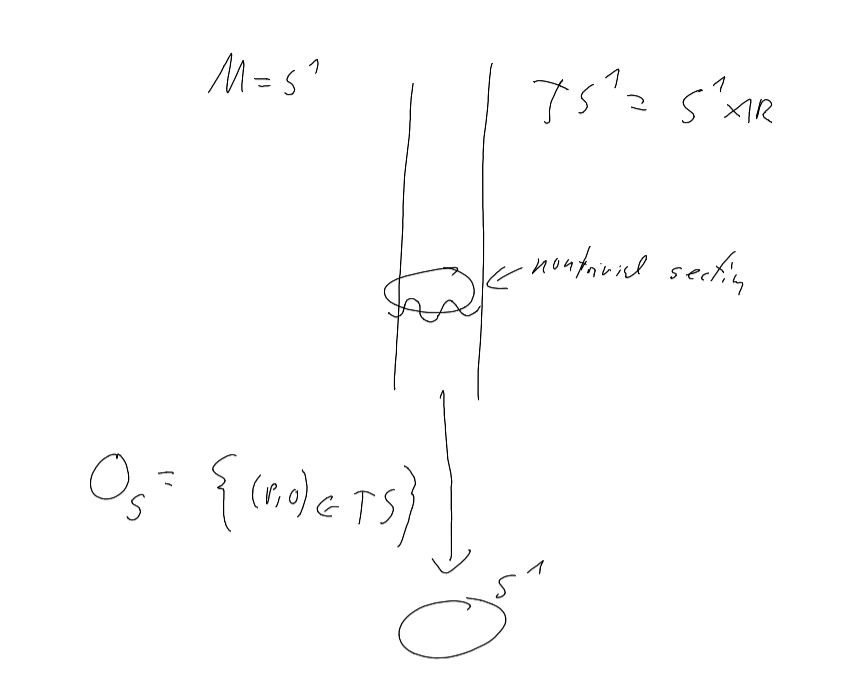 M = S¹
TS¹ = S¹×ℝ
nontrivial sectin
O_S = {(p,0) ∈ TS}
S¹